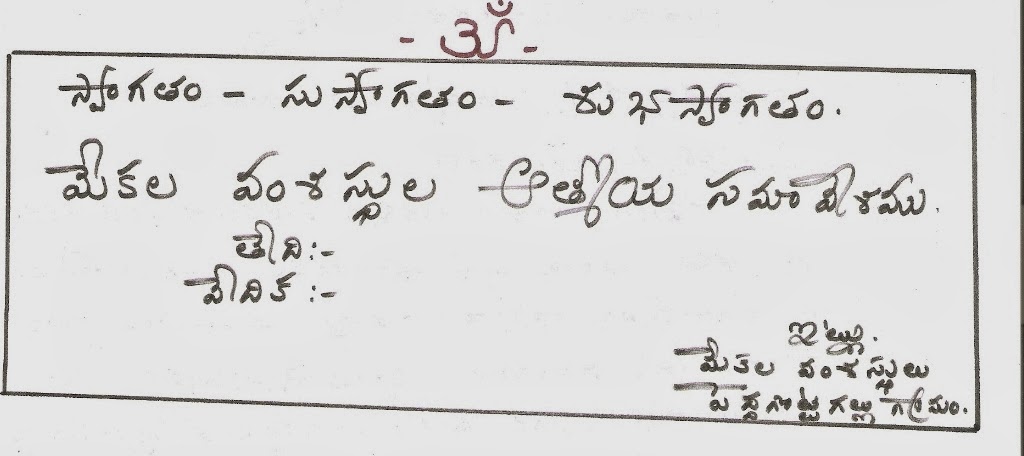 - ఓఁ -
స్వాగతం - సుస్వాగతం - శుభాస్వాగతం.
మేకల వంశస్థుల ఆత్మీయ సమావేశము.
తేది:-
వేదిక :-
ఇట్లు.
మేకల వంశస్థులు
పెద్దగొట్టిగల్లు గ్రామం.